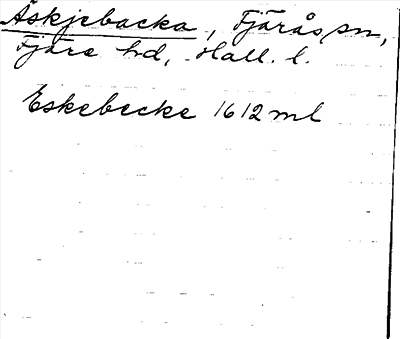 Äskjebacka, Fjärås sn,
Fjäre hd, Hall. l.
Eskebecke 1612 ml